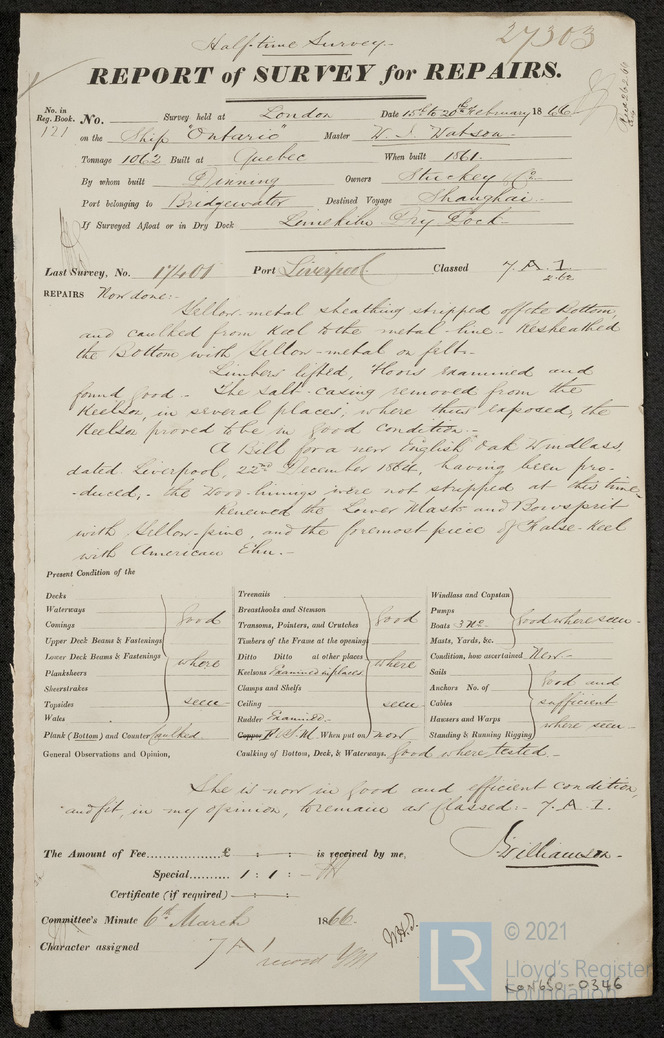 27303
Half-time Survey.
REPORT of SURVEY for REPAIRS.
No. in Reg. Book. 121
No. Survey held at London Date 15th to 20th February 1866
on the Ship "Ontario" Master W. J. Watson
Tonnage 1062 Built at Quebec When built 1861
By whom built Dinning Owners Stuckey & Co
Port belonging to Bridgewater Destined Voyage Shanghai
If Surveyed Afloat or in Dry Dock Limekiln Dry Dock
Last Survey, No. 17401 Port Liverpool Classed 7 A 1
2.62
REPAIRS Now done:-
Yellow-metal sheathing stripped off the Bottom,
and caulked from Keel to the metal-line. Resheathed
the Bottom with Yellow-metal on felt.-
Limbers lifted, Floors examined and
found good.- The salt-casing removed from the
Keelson, in several places; where thus exposed, the
Keelson proved to be in good condition.-
A Bill for a new English Oak Windlass,
dated Liverpool, 22nd December 1864, having been pro-
-duced,- the Wood-linings were not stripped at this time.
Renewed the Lower Masts and Bowsprit
with Yellow-pine, and the foremost piece of False-Keel
with American Elm.-
Present Condition of the
Decks
Waterways
Comings
Upper Deck Beams & Fastenings
Lower Deck Beams & Fastenings
Planksheers
Sheerstrakes
Topsides
Wales
good where seen
Plank (Bottom) and Counter Caulked
Treenails
Breasthooks and Stemson
Transoms, Pointers, and Crutches
Timbers of the Frame at the openings
Ditto Ditto at other places
Keelsons Examined in places
Clamps and Shelfs
Ceiling
Rudder Examined.-
good where seen
Copper Y. M. When put on now
Windlass and Capstan
Pumps
Boats 3 No.
Masts, Yards, &c.
good where seen.-
Condition, how ascertained New.-
Sails
Anchors No. of
Cables
Hawsers and Warps
Standing & Running Rigging
good and sufficient where seen.-
General Observations and Opinion, Caulking of Bottom, Deck, & Waterways. good where tested.-
She is now in good and efficient condition,
and fit, in my opinion, to remain as Classed:- 7. A. 1.
J. Williamson.-
The Amount of Fee............... £ : : is received by me,
Special......... 1 : 1 : -
Certificate (if required) : :
Committee's Minute 6th March 1866.
Character assigned 7 A 1
W.H.D.
LR
© 2021
Lloyd's Register
Foundation
LON650-0346